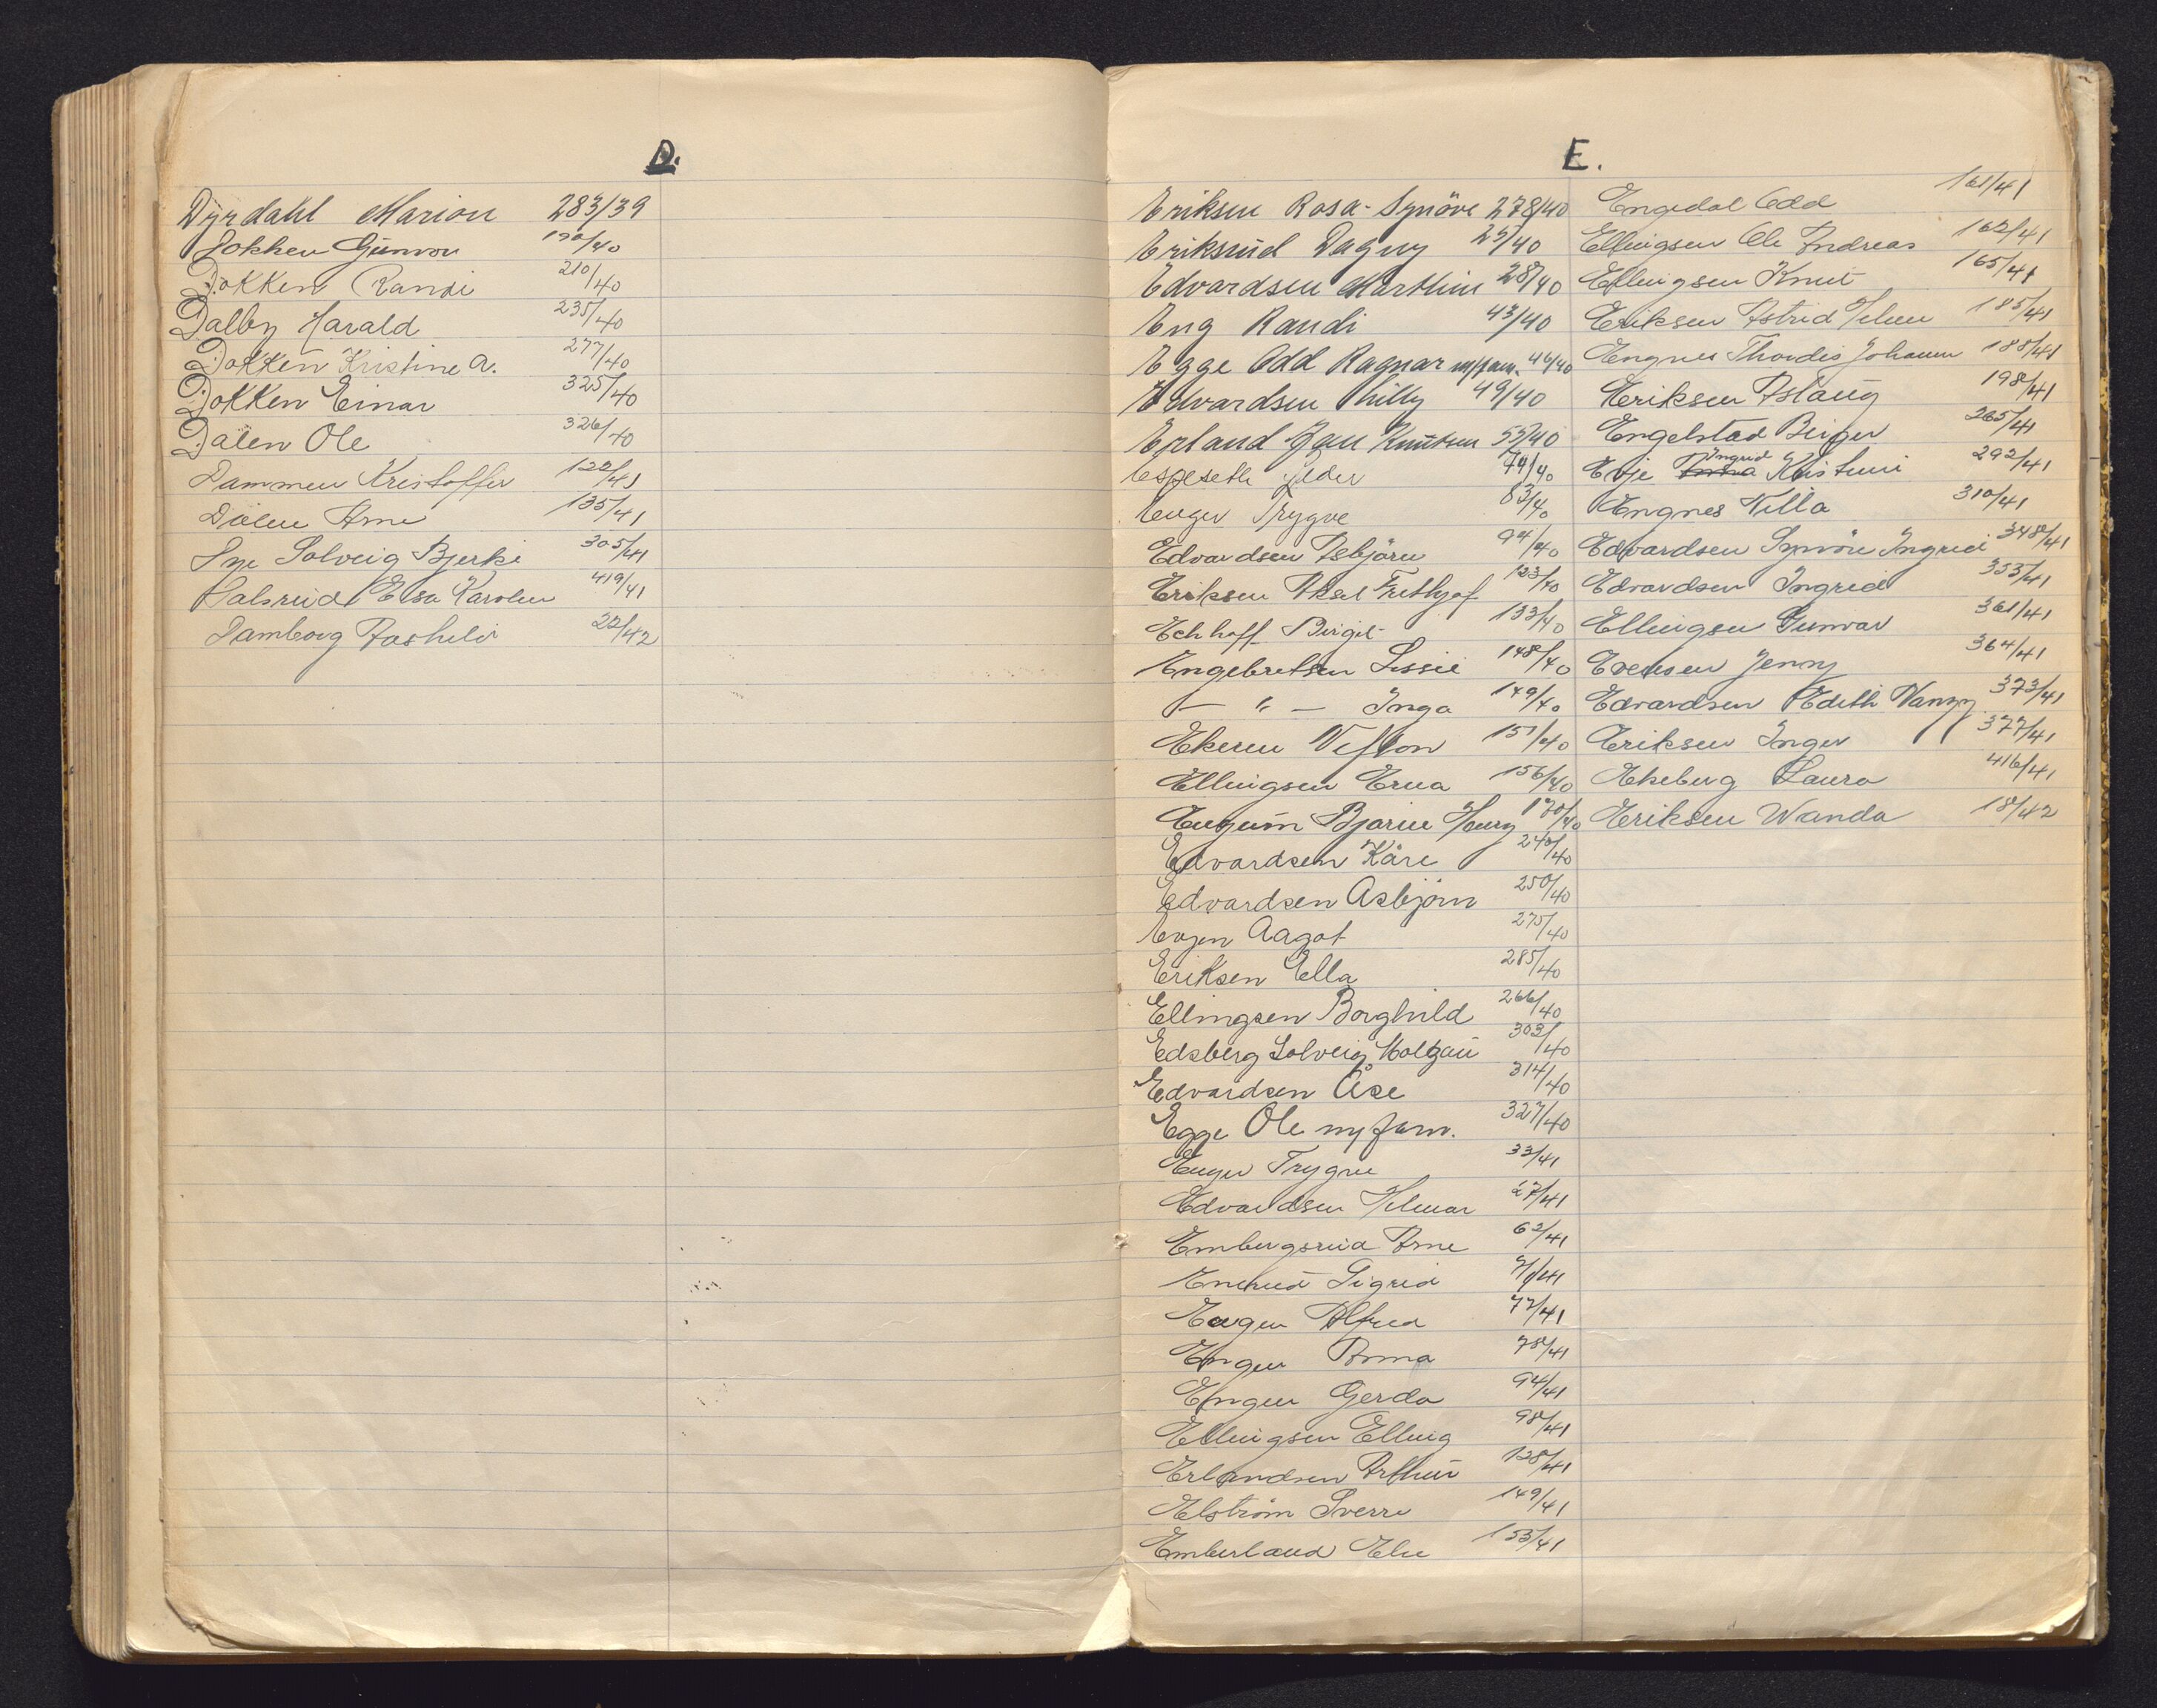 D.
Dyrdahl Marion 283/39
Dokken Gunvor 190/40
Dokken Randi 210/40
Dalby Harald 235/40
Dokken Kristine A. 277/40
Dokken Einar 325/40
Dalen Ole 326/40
Dammen Kristoffer 122/41
Dalen Arne 135/41
Dye Solveig Bjerke 305/41
Dalsrud Elsa Karolen 419/41
Damborg 22/42
E.
Eriksen Rosa-Synöve 278/40
Eriksrud Dagny 25/40
Edvardsen Marthin 28/40
Eng Randi 43/40
Egge Odd Ragnar m/fam. 46/40
Edvardsen Willy 49/40
Erland Jan Knutsen 55/40
Espeseth Peder 74/40
Enger Trygve 83/40
Edvardsen Asbjörn 94/40
Eriksen Aksel Frithjof 123/40
Echhoff Birgit 133/40
Engebretsen Lissie 148/40
— " — Inga 149/40
Ekeren 151/40
Ellingsen Erna 156/40
Engum Bjarne Henry 170/40
Edvardsen Kåre 240/40
Edvardsen Asbjörn 250/40
Evjen Aagot 275/40
Eriksen Ella 285/40
Ellingsen Borghild 266/40
Edsberg Solveig Holtzau 303/40
Edvardsen Åse 314/40
Egge Ole m/fam. 327/40
Enger Trygve 33/41
Edvardsen Hilmar 27/41
Embergsrud Arne 62/41
Enerud Sigrid 71/41
Engen Alfred 77/41
Engen Anna 78/41
Engen Gerda 94/41
Ellingsen Elling 98/41
Erlandsen Arthur 128/41
Elström Sverre 149/41
Emberland Elie 153/41
Engedal Odd 161/41
Ellingsen Ole Andreas 162/41
Ellingsen Knut 165/41
Eriksen Astrid Helene 185/41
Engnes Thordis Johanne 188/41
Eriksen Aslaug 198/41
Engelstad Birger 265/41
Evje Ingrid Kristine 292/41
Engnes Villa 310/41
Edvardsen Synnöve Ingrid 348/41
Edvardsen Ingrid 353/41
Ellingsen Gunvor 361/41
Evensen Jenny 364/41
Edvardsen Edith Nanny 373/41
Eriksen Inger 377/41
Ekeberg Laura 416/41
Eriksen Wanda 18/42